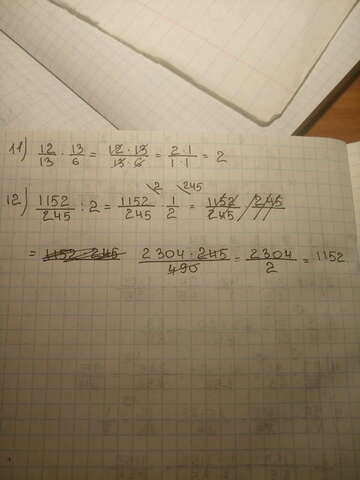 11) 12/13 · 13/6 = 12 · 13/13 · 6 = 2 · 1/1 · 1 = 2
12) 1152/245 : 2 = 1152/245 · 1/2 = 1152/245 245
= 1152 245 2304 · 245/490 = 2304/2 = 1152